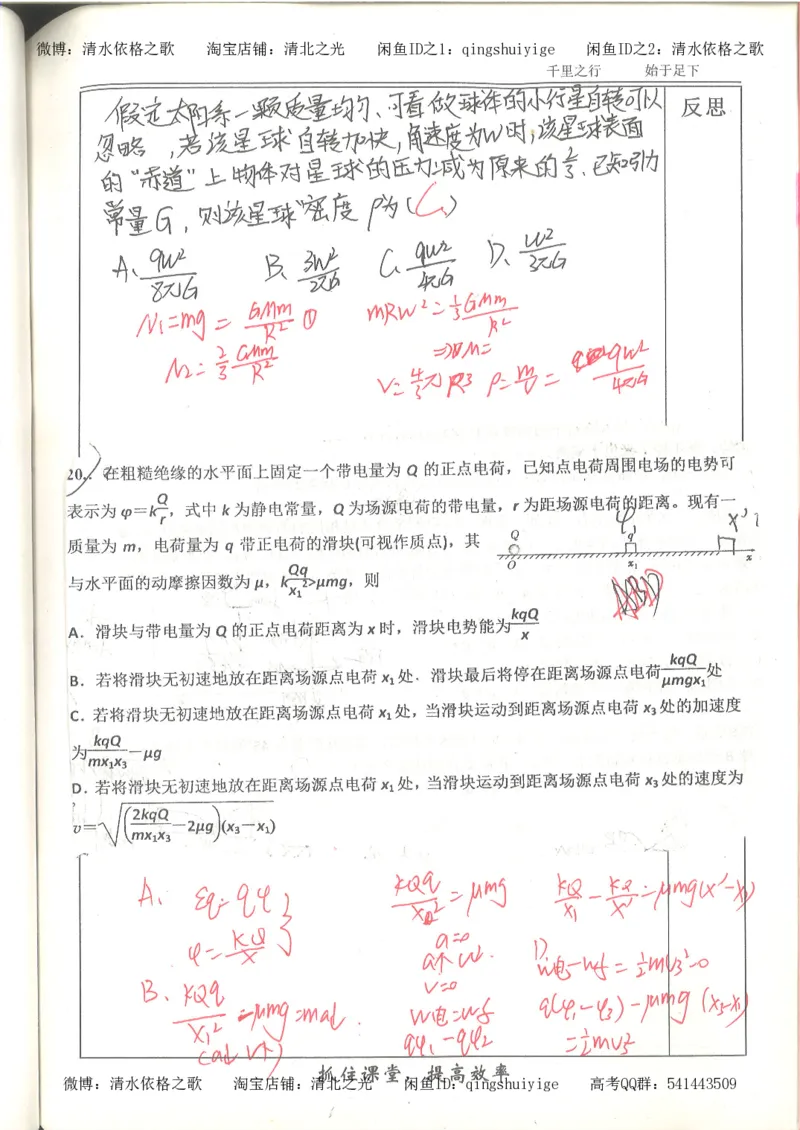 微博：清水依格之歌 淘宝店铺：清北之光 闲鱼ID之1：qingshuiyige 闲鱼ID之2：清水依格之歌
千里之行 始于足下
反思
假定太阳系一颗质量均匀、可看做球体的小行星自转可以
忽略，若该星球自转加快，角速度为W时，该星球表面
的“赤道”上物体对星球的压力减为原来的2/3.已知引力
常量G，则该星球密度ρ为(C)
A、9W²/8πG B、3W²/2πG C、9W²/4πG D、W²/3πG
N₁=mg=GMm/R² ① mRW²=1/3 GMm/R²
N₂=2/3 GMm/R² ⇒M=
V=4/3πR³ ρ=m/V= 9W²/4πG
20.．在粗糙绝缘的水平面上固定一个带电量为 Q 的正点电荷，已知点电荷周围电场的电势可
表示为 φ＝kQ/r，式中 k 为静电常量，Q 为场源电荷的带电量，r 为距场源电荷的距离。现有一
质量为 m，电荷量为 q 带正电荷的滑块(可视作质点)，其
与水平面的动摩擦因数为 μ，kQq/x₁²>μmg，则
Q φ q x' O x₁ x
ABD
A．滑块与带电量为 Q 的正点电荷距离为 x 时，滑块电势能为kqQ/x
B．若将滑块无初速地放在距离场源点电荷 x₁ 处．滑块最后将停在距离场源点电荷kqQ/μmgx₁处
C．若将滑块无初速地放在距离场源点电荷 x₁ 处，当滑块运动到距离场源点电荷 x₃ 处的加速度
为kqQ/mx₁x₃－μg
D．若将滑块无初速地放在距离场源点电荷 x₁ 处，当滑块运动到距离场源点电荷 x₃ 处的速度为
v＝√(2kqQ/mx₁x₃－2μg)(x₃－x₁)
A、εq=qφ
φ=kQ/x
B、kQq/x₁²-μmg=ma↓
(a↓ v↑)
kQq/x₂²=μmg
a=0
a↑v↓.
v=0
W电=Wf
qφ₁-qφ₂
kQ/x₁-kQ/x'=μmg(x'-x₁)
D
W电-Wf=1/2mv₃²-0
q(φ₁-φ₃)-μmg(x₃-x₁)
=1/2mv₃²
抓住课堂，提高效率
微博：清水依格之歌 淘宝店铺：清北之光 闲鱼ID：qingshuiyige 高考QQ群：541443509